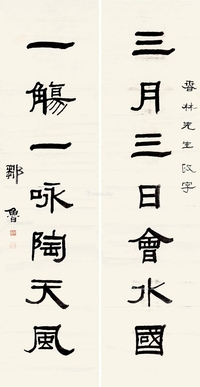 香林先生政字
三月三日會水國
一觴一咏陶天風
鄒魯